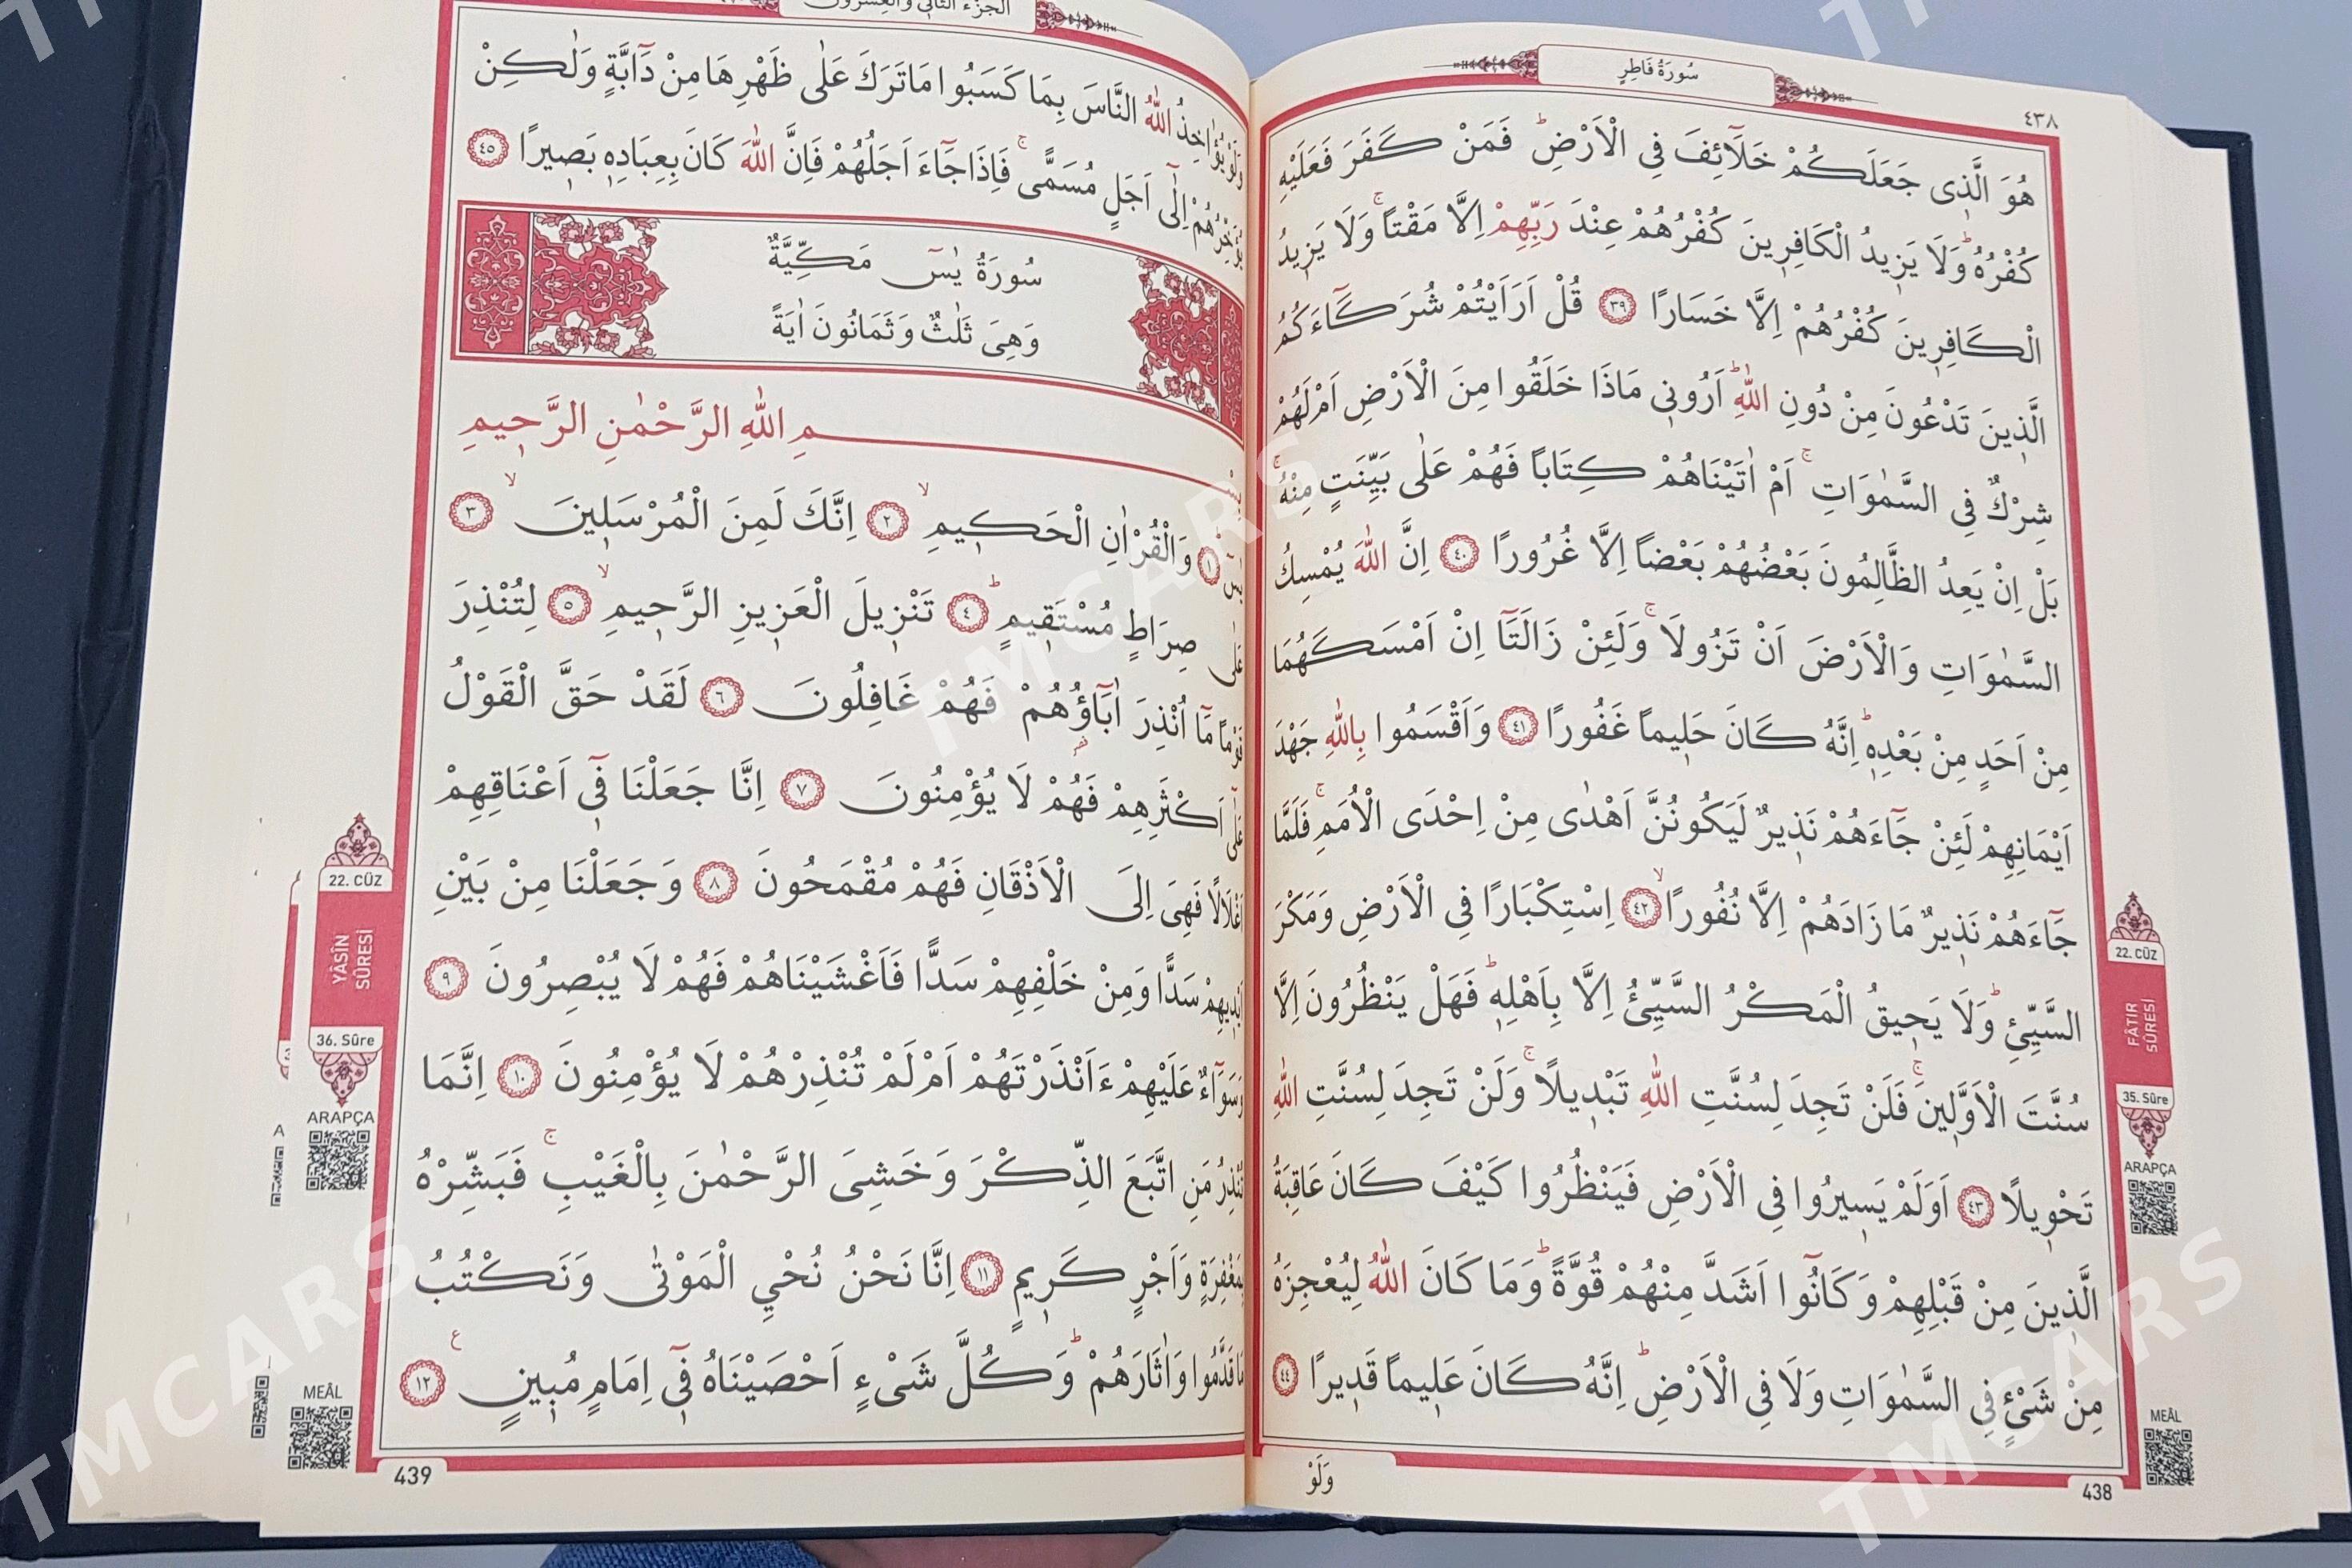 سُورَةُ فَاطِرٍ
٤٣٨
هُوَ الَّذٖى جَعَلَكُمْ خَلَٓائِفَ فِي الْاَرْضِؕ فَمَنْ كَفَرَ فَعَلَيْهِ
كُفْرُهُؕ وَلَا يَزٖيدُ الْكَافِرٖينَ كُفْرُهُمْ عِنْدَ رَبِّهِمْ اِلَّا مَقْتاًۚ وَلَا يَزٖيدُ
الْكَافِرٖينَ كُفْرُهُمْ اِلَّا خَسَارًا ٣٩ قُلْ اَرَاَيْتُمْ شُرَكَٓاءَكُمُ
الَّذٖينَ تَدْعُونَ مِنْ دُونِ اللّٰهِؕ اَرُونٖى مَاذَا خَلَقُوا مِنَ الْاَرْضِ اَمْ لَهُمْ
شِرْكٌ فِي السَّمٰوَاتِۚ اَمْ اٰتَيْنَاهُمْ كِتَاباً فَهُمْ عَلٰى بَيِّنَتٍ مِنْهُۚ
بَلْ اِنْ يَعِدُ الظَّالِمُونَ بَعْضُهُمْ بَعْضاً اِلَّا غُرُورًا ٤٠ اِنَّ اللّٰهَ يُمْسِكُ
السَّمٰوَاتِ وَالْاَرْضَ اَنْ تَزُولَاۚ وَلَئِنْ زَالَتَٓا اِنْ اَمْسَكَهُمَا
مِنْ اَحَدٍ مِنْ بَعْدِهٖؕ اِنَّهُ كَانَ حَلٖيماً غَفُورًا ٤١ وَاَقْسَمُوا بِاللّٰهِ جَهْدَ
اَيْمَانِهِمْ لَئِنْ جَٓاءَهُمْ نَذٖيرٌ لَيَكُونُنَّ اَهْدٰى مِنْ اِحْدَى الْاُمَمِۚ فَلَمَّا
جَٓاءَهُمْ نَذٖيرٌ مَا زَادَهُمْ اِلَّا نُفُورًاۙ ٤٢ اِسْتِكْبَارًا فِي الْاَرْضِ وَمَكْرَ
السَّيِّئِؕ وَلَا يَحٖيقُ الْمَكْرُ السَّيِّئُ اِلَّا بِاَهْلِهٖؕ فَهَلْ يَنْظُرُونَ اِلَّا
سُنَّتَ الْاَوَّلٖينَۚ فَلَنْ تَجِدَ لِسُنَّتِ اللّٰهِ تَبْدٖيلًاۚ وَلَنْ تَجِدَ لِسُنَّتِ اللّٰهِ
تَحْوٖيلًا ٤٣ اَوَلَمْ يَسٖيرُوا فِي الْاَرْضِ فَيَنْظُرُوا كَيْفَ كَانَ عَاقِبَةُ
الَّذٖينَ مِنْ قَبْلِهِمْ وَكَانُٓوا اَشَدَّ مِنْهُمْ قُوَّةًؕ وَمَا كَانَ اللّٰهُ لِيُعْجِزَهُ
مِنْ شَيْءٍ فِي السَّمٰوَاتِ وَلَا فِي الْاَرْضِؕ اِنَّهُ كَانَ عَلٖيماً قَدٖيرًا ٤٤
وَلَوْ
438
22. CÜZ
FÂTIR
SÛRESİ
35. Sûre
ARAPÇA
MEÂL
الجزء الثاني والعشرون
وَلَوْ يُؤَاخِذُ اللّٰهُ النَّاسَ بِمَا كَسَبُوا مَا تَرَكَ عَلٰى ظَهْرِهَا مِنْ دَٓابَّةٍ وَلٰكِنْ
يُؤَخِّرُهُمْ اِلٰٓى اَجَلٍ مُسَمًّىۚ فَاِذَا جَٓاءَ اَجَلُهُمْ فَاِنَّ اللّٰهَ كَانَ بِعِبَادِهٖ بَصٖيرًا ٤٥
سُورَةُ يٰسٓ مَكِّيَّةٌ
وَهِىَ ثَلٰثٌ وَثَمَانُونَ اٰيَةً
بِسْمِ اللّٰهِ الرَّحْمٰنِ الرَّحٖيمِ
يٰسٓ ١ وَالْقُرْاٰنِ الْحَكٖيمِۙ ٢ اِنَّكَ لَمِنَ الْمُرْسَلٖينَۙ ٣
عَلٰى صِرَاطٍ مُسْتَقٖيمٍؕ ٤ تَنْزٖيلَ الْعَزٖيزِ الرَّحٖيمِۙ ٥ لِتُنْذِرَ
قَوْماً مَٓا اُنْذِرَ اٰبَٓاؤُهُمْ فَهُمْ غَافِلُونَ ٦ لَقَدْ حَقَّ الْقَوْلُ
عَلٰٓى اَكْثَرِهِمْ فَهُمْ لَا يُؤْمِنُونَ ٧ اِنَّا جَعَلْنَا فٖٓى اَعْنَاقِهِمْ
اَغْلَالًا فَهِىَ اِلَى الْاَذْقَانِ فَهُمْ مُقْمَحُونَ ٨ وَجَعَلْنَا مِنْ بَيْنِ
اَيْدٖيهِمْ سَدًّا وَمِنْ خَلْفِهِمْ سَدًّا فَاَغْشَيْنَاهُمْ فَهُمْ لَا يُبْصِرُونَ ٩
وَسَوَٓاءٌ عَلَيْهِمْ ءَاَنْذَرْتَهُمْ اَمْ لَمْ تُنْذِرْهُمْ لَا يُؤْمِنُونَ ١٠ اِنَّمَا
تُنْذِرُ مَنِ اتَّبَعَ الذِّكْرَ وَخَشِىَ الرَّحْمٰنَ بِالْغَيْبِۚ فَبَشِّرْهُ
بِمَغْفِرَةٍ وَاَجْرٍ كَرٖيمٍ ١١ اِنَّا نَحْنُ نُحْيِ الْمَوْتٰى وَنَكْتُبُ
مَا قَدَّمُوا وَاٰثَارَهُمْؕ وَكُلَّ شَىْءٍ اَحْصَيْنَاهُ فٖٓى اِمَامٍ مُبٖينٍ ١٢
ع
439
22. CÜZ
YÂSÎN
SÛRESİ
36. Sûre
ARAPÇA
MEÂL
TMCARS
TMCARS
TMCARS